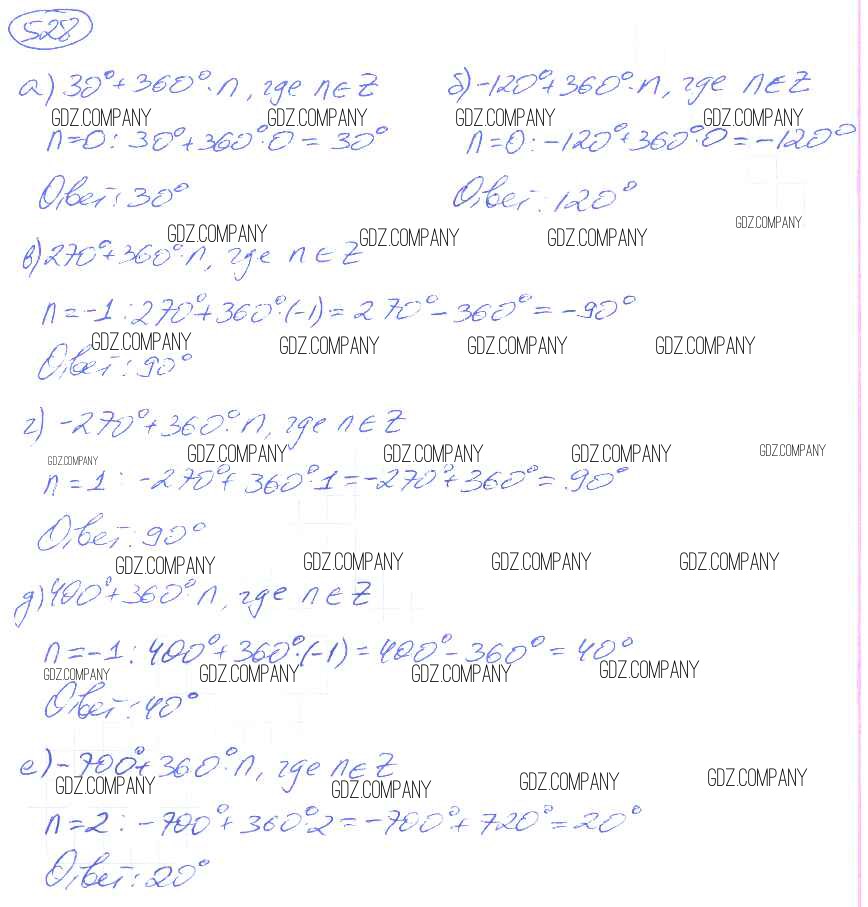 528
а) 30°+360°·n, где n∈Z б) -120°+360°·n, где n∈Z
GDZ.COMPANY GDZ.COMPANY GDZ.COMPANY GDZ.COMPANY
n=0: 30°+360°·0=30° n=0: -120°+360°·0=-120°
Ответ: 30° Ответ: 120°
GDZ.COMPANY GDZ.COMPANY GDZ.COMPANY GDZ.COMPANY
в) 270°+360°·n, где n∈Z
n=-1: 270°+360°·(-1)=270°-360°=-90°
GDZ.COMPANY GDZ.COMPANY GDZ.COMPANY GDZ.COMPANY
Ответ: 90°
г) -270°+360°·n, где n∈Z
GDZ.COMPANY GDZ.COMPANY GDZ.COMPANY GDZ.COMPANY GDZ.COMPANY
n=1: -270°+360°·1=-270°+360°=90°
Ответ: 90°
GDZ.COMPANY GDZ.COMPANY GDZ.COMPANY GDZ.COMPANY
д) 400°+360°·n, где n∈Z
n=-1: 400°+360°·(-1)=400°-360°=40°
GDZ.COMPANY GDZ.COMPANY GDZ.COMPANY GDZ.COMPANY
Ответ: 40°
е) -700°+360°·n, где n∈Z
GDZ.COMPANY GDZ.COMPANY GDZ.COMPANY GDZ.COMPANY
n=2: -700°+360°·2=-700°+720°=20°
Ответ: 20°